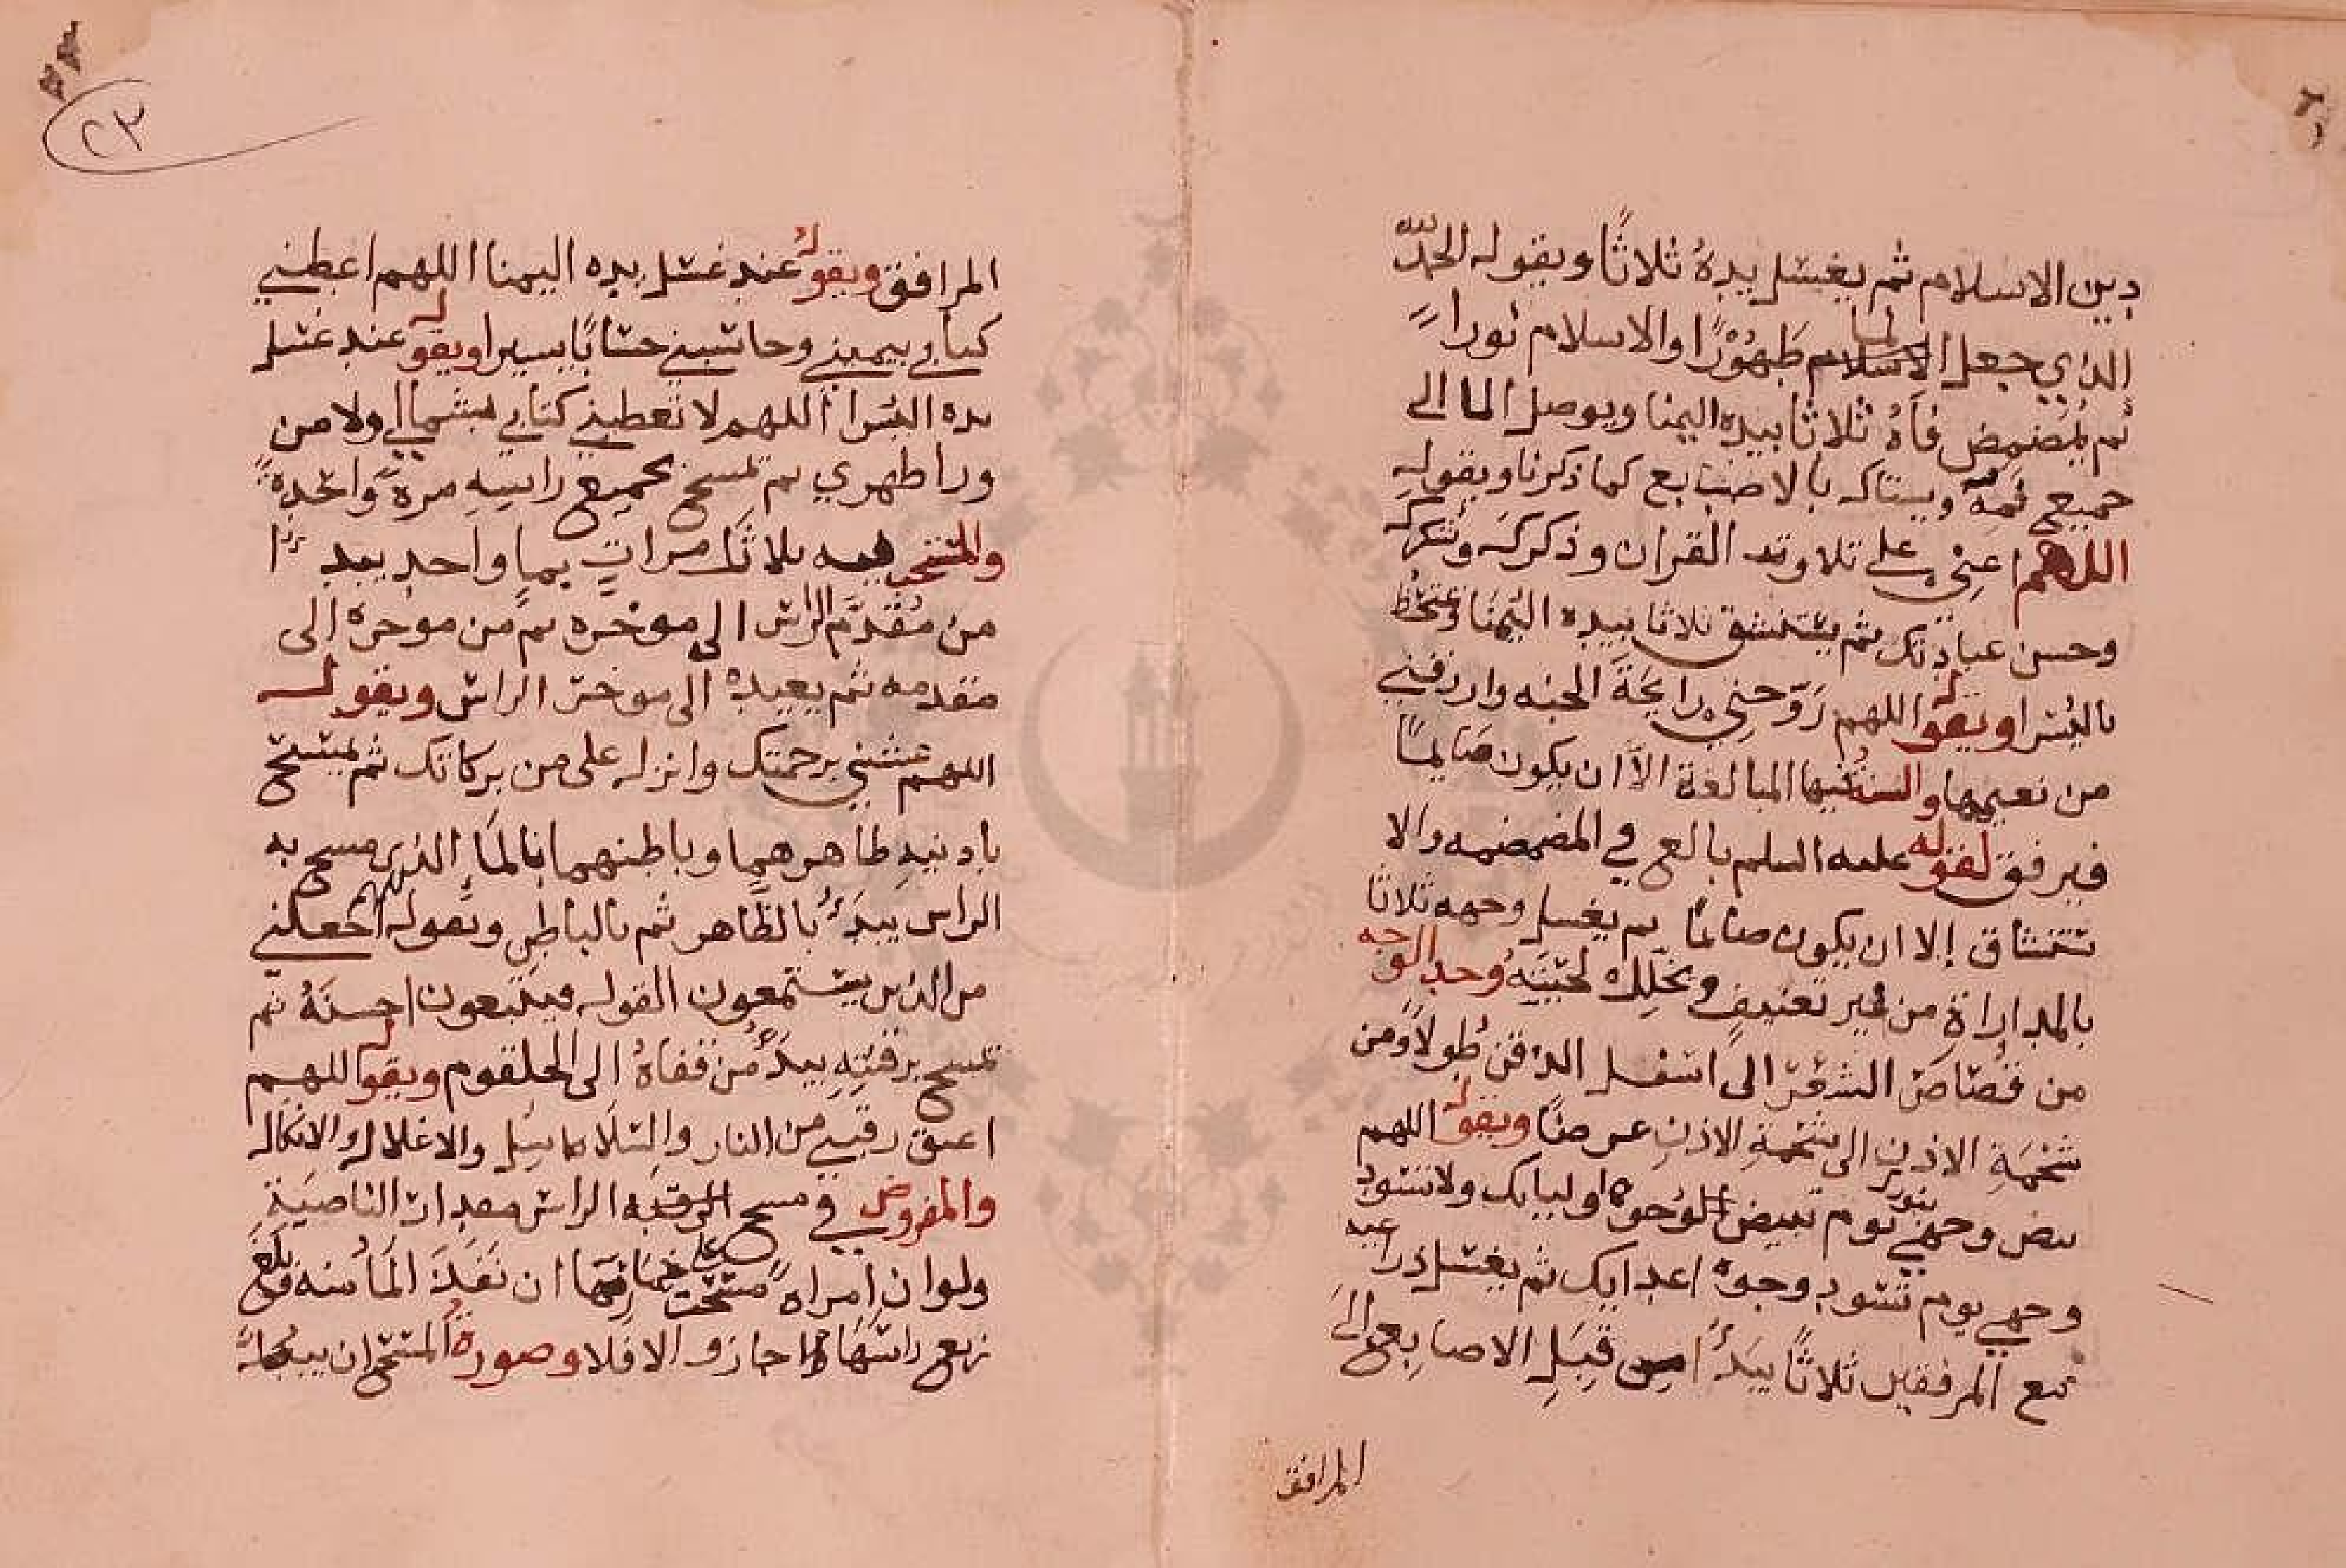 دين الاسلام ثم يغسل يديهُ ثلاثًا ويقول الحمد لله
الذي جعل الما طَهُوْرًا والاسلام نورا
ثم يمضمض فاهُ ثلاثا بيده اليمنا ويوصل الما الى
جميع فمه ويستاك بالاصبع كما ذكرنا ويقول
اللهم اعني على تلاوة القران وذكرك وشكرك
وحسن عبادتك ثم يستنشق ثلاثا بيده اليمنا ويمتخط
باليسرا ويقول اللهم رَوّحني رايحَةَ الجنه وارزقني
من نعيمها والسنة فيها المبالغة الا ان يكون صايمًا
فيرفق لقوله عليه السلم بالغ في المضمضمه والا
ستنشاق إلا ان يكون صايمًا ثم يغسل وجهه ثلاثا
بالمداراة من غير تعنيفٍ ويخلل لحيَتَهِ وحد الوجه
من قُصَاصَ الشعر الى اسفل الذقن طُولاً ومن
شحمَةِ الاذن الى شحمةِ الاذنِ عرضًا ويقول اللهم
بيض وجهي بنورك يوم تبيض الوُجوه اوليايك ولا تسود
وجهي يوم تسود وجوه اعدايك ثم يغسل ذراعيه
مع المرفقين ثلاثًا يبدَأُ من قِبَلِ الاصابع الىَ
المرافق
٢٣
المرافق ويقول عند غسل يده اليمنا اللهم اعطني
كتابي بيميني وحاسبني حسابًا يسيرا ويقول عند غسل
يده اليسرا اللهم لا تعطيني كتابي بشمالي ولا من
ورا ظهري ثم يمسح بجميع راسِهِ مرة واحدة
والمستحب فيه ثلاثَ مراتٍ بماٍ واحدٍ يبدأ
من مُقَدَّم الراس الى موخره ثم من موخره الى
مقدمه ثم يعيده الى موخر الراس ويقول
اللهم غشني برحمتك وانزل على من بركاتك ثم يمسح
باذنيهِ ظاهرهما وباطنهما بالمَاء الذي مسح به
الراس يبدَأُ بالظَاهر ثم بالباطِنِ ويقول اللهم اجعلني
من الذين يستمعون القول فيتبعون احسنَهُ ثم
يمسح برقبتِهِ يبدَأُ من قفاهُ الى الحلقوم ويقول اللهم
اعتق رقبتي من النار والسَلاسِلِ والاغلال والانكال
والمفروض في مسح الراس مقدار الناصيَةِ
ولو ان امراه مسحت على خمارها ان نَفَذَ المَا منه فبلغ
ربع راسَهَا جاز والا فلا وصورة المسح ان يبُلَ